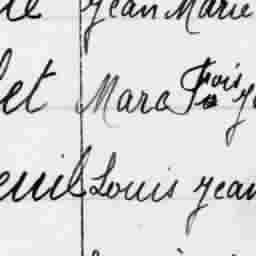 Jean Marie
et Marc Fois
euil Louis Jean